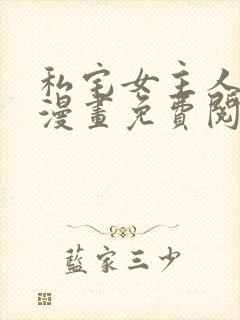 私宅女主人
漫畫免費閱
藍家三少